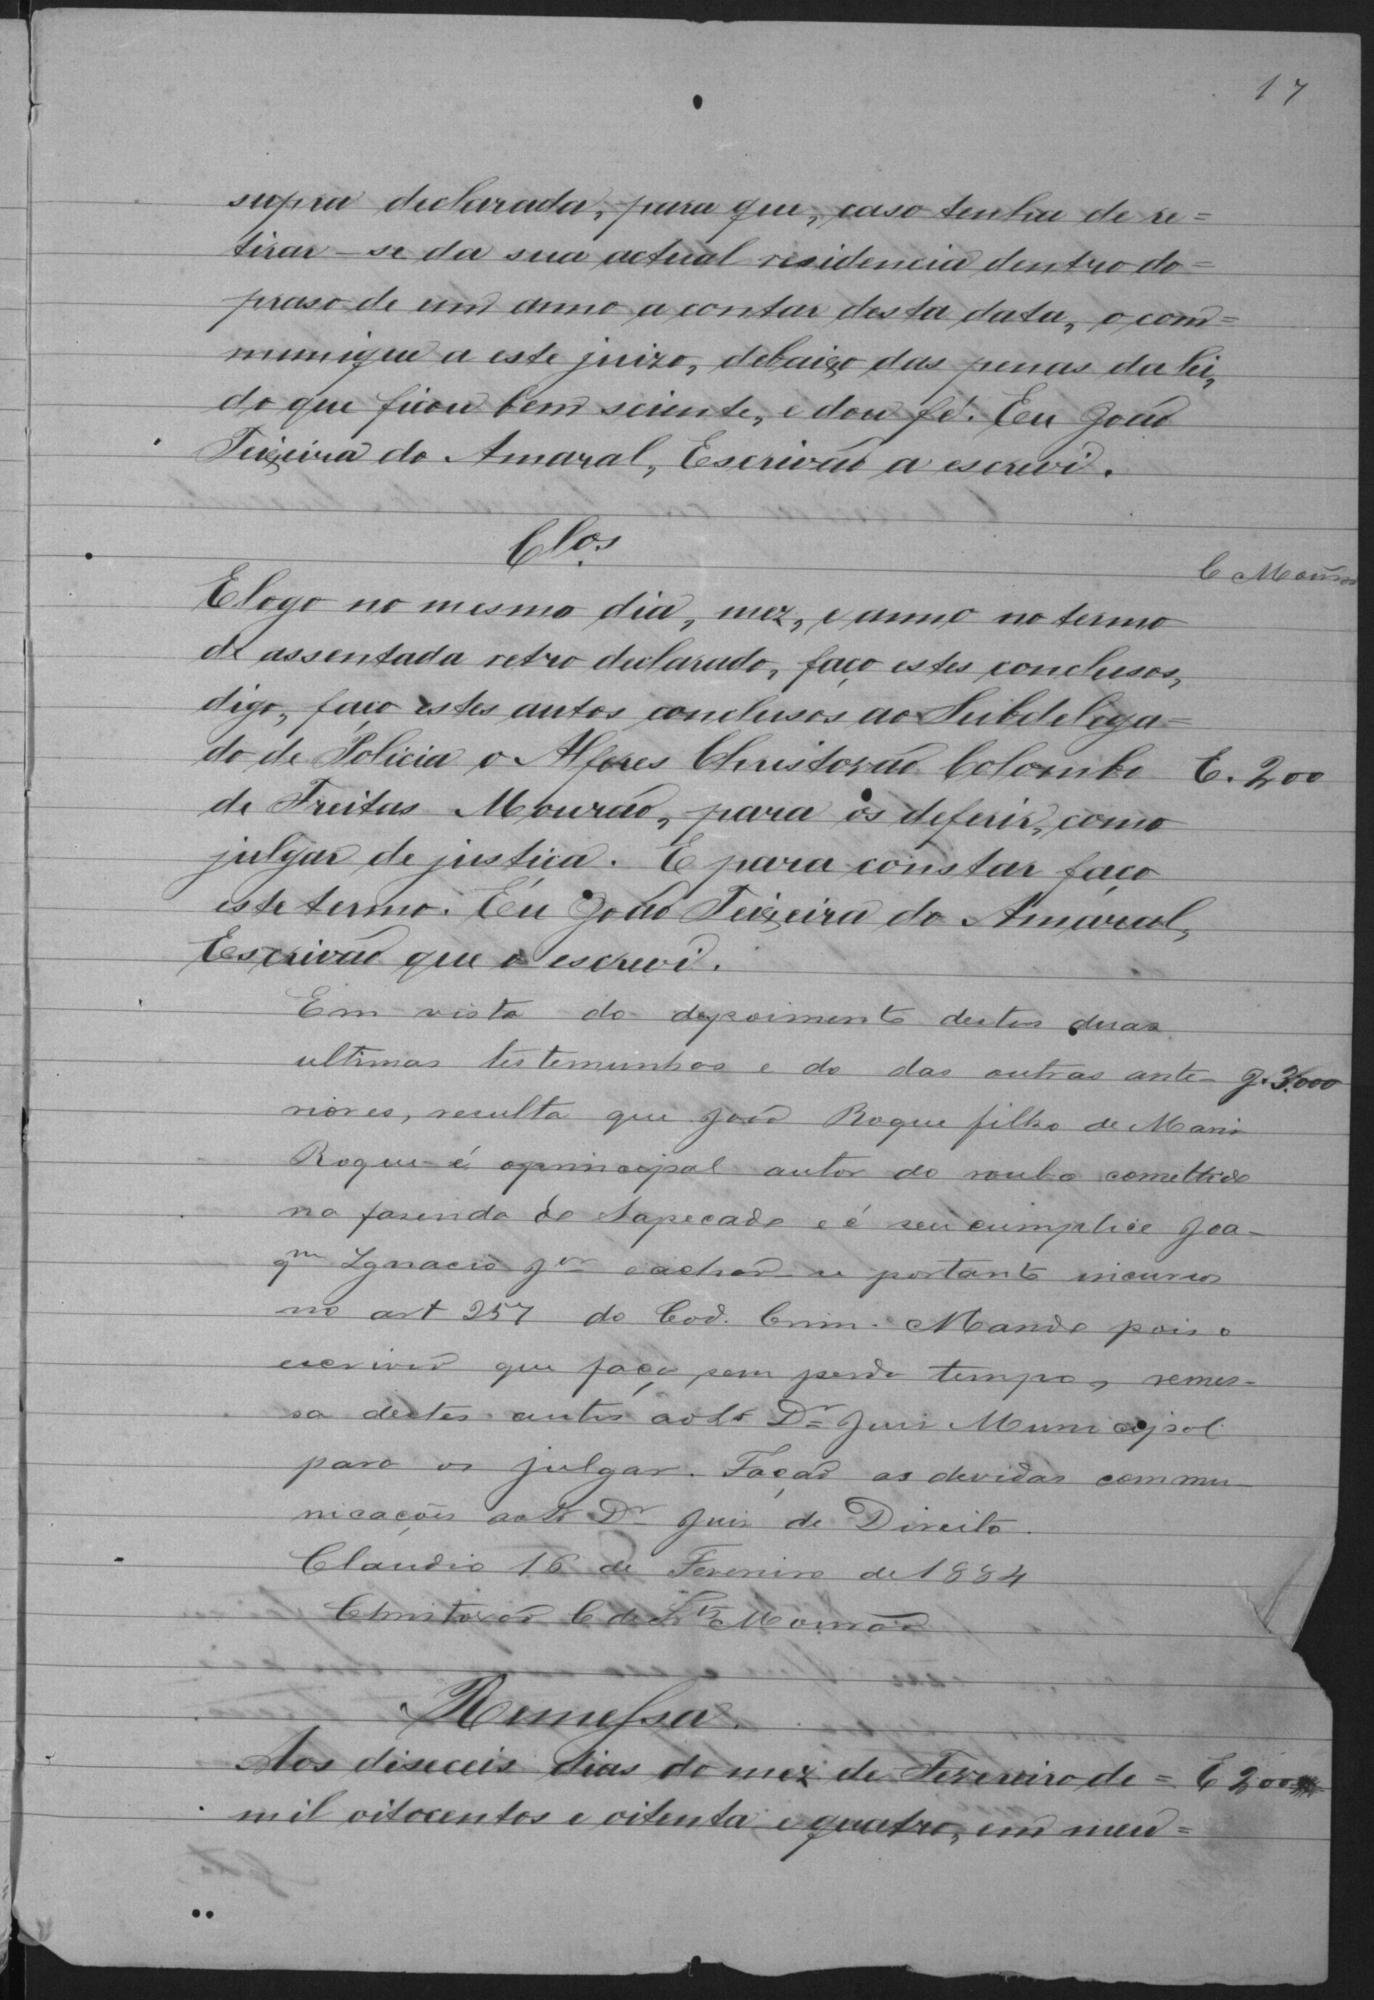 17
supra declarada, para que, caso tenha de re=
tirar-se da sua actual residencia dentro do=
praso de um anno a contar desta data, o com=
munique a este juizo, debaixo das penas da lei,
do que ficou bem sciente, e dou fé. Eu João
Teixeira do Amaral, Escrivão a escrevi.
Clos.
C Mourão
E logo no mesmo dia, mez, e anno no termo
de assentada retro declarado, faço estes conclusos,
digo, faço estes autos conclusos ao Subdelega=
do de Policia o Alferes Christovão Colombo E. 200
de Freitas Mourão, para os deferir, como
julgar de justiça. E para constar faço
este termo. Eu João Teixeira do Amaral,
Escrivão que o escrevi.
Em vista do depoimento destas duas
ultimas testemunhas e do das outras ante- J. 3.000
riores, resulta que João Roque filho de Maria
Roque é o principal autor do roubo comettido
na fasenda do Sapecado e é seu cumplice Joa-
qm Ignacio Jor e achão-se portanto incursos
no art 257 do Cod. Crim. Mando pois o
escrivão que faça, sem perda tempo, remes-
sa destes autos ao Dr Juis Municipal
para os julgar. Fação as devidas commu-
nicações ao Dr Juis de Direito.
Claudio 16 de Fevereiro de 1884
Christovão C de Ftas Mourão
Remessa.
Aos diseceis dias do mez de Fevereiro de = E 200
mil oitocentos e oitenta e quatro, em meu=